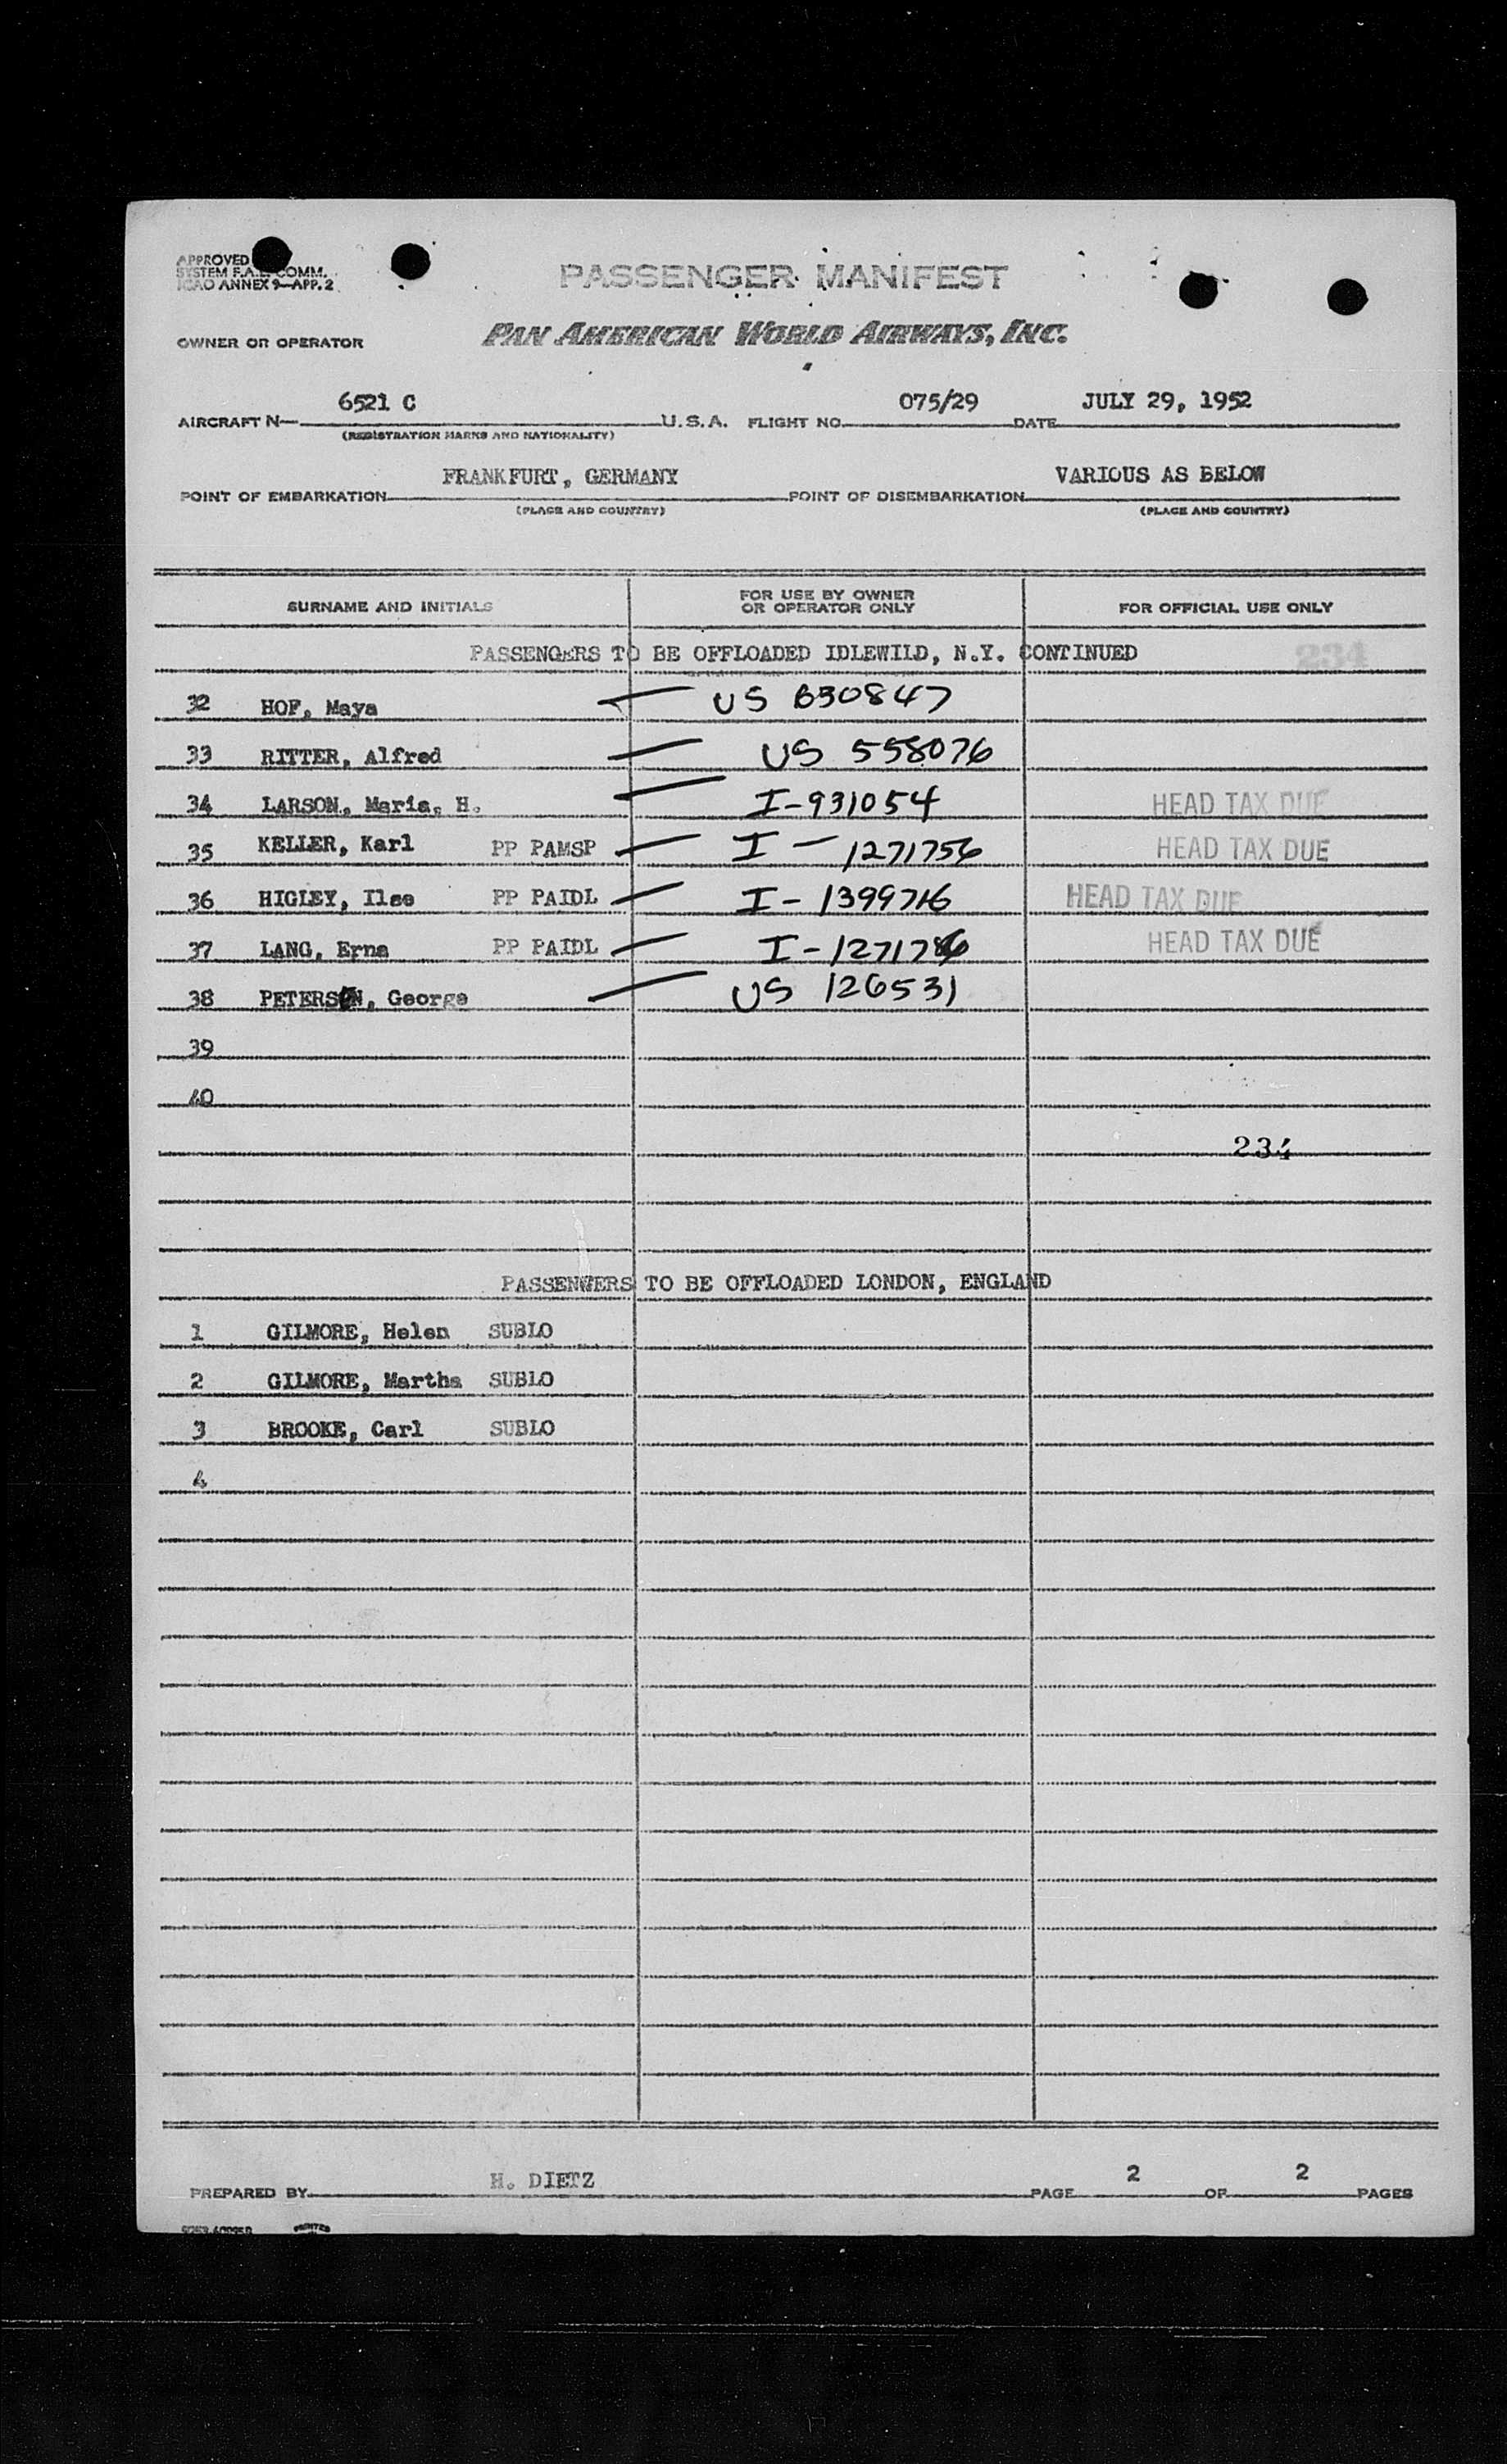 APPROVED
SYSTEM F.A.L. COMM.
ICAO ANNEX 9—APP. 2
PASSENGER MANIFEST
OWNER OR OPERATOR PAN AMERICAN WORLD AIRWAYS, INC.
AIRCRAFT N— 6521 C U.S.A. FLIGHT NO. 075/29 DATE JULY 29, 1952
(REGISTRATION MARKS AND NATIONALITY)
POINT OF EMBARKATION FRANKFURT, GERMANY POINT OF DISEMBARKATION VARIOUS AS BELOW
(PLACE AND COUNTRY) (PLACE AND COUNTRY)
SURNAME AND INITIALS FOR USE BY OWNER OR OPERATOR ONLY FOR OFFICIAL USE ONLY
PASSENGERS TO BE OFFLOADED IDLEWILD, N.Y. CONTINUED 234
32 HOF, Maya — US B30847
33 RITTER, Alfred — US 558076
34 LARSON, Maria, H. — I-931054 HEAD TAX DUE
35 KELLER, Karl PP PAMSP — I-1271756 HEAD TAX DUE
36 HIGLEY, Ilse PP PAIDL — I-1399716 HEAD TAX DUE
37 LANG, Erna PP PAIDL — HEAD TAX DUE
38 PETERSON, George — US 126531
39
40
234
PASSENGERS TO BE OFFLOADED LONDON, ENGLAND
1 GILMORE, Helen SUBLO
2 GILMORE, Martha SUBLO
3 BROOKE, Carl SUBLO
4
PREPARED BY H. DIETZ PAGE 2 OF 2 PAGES
PRINTED